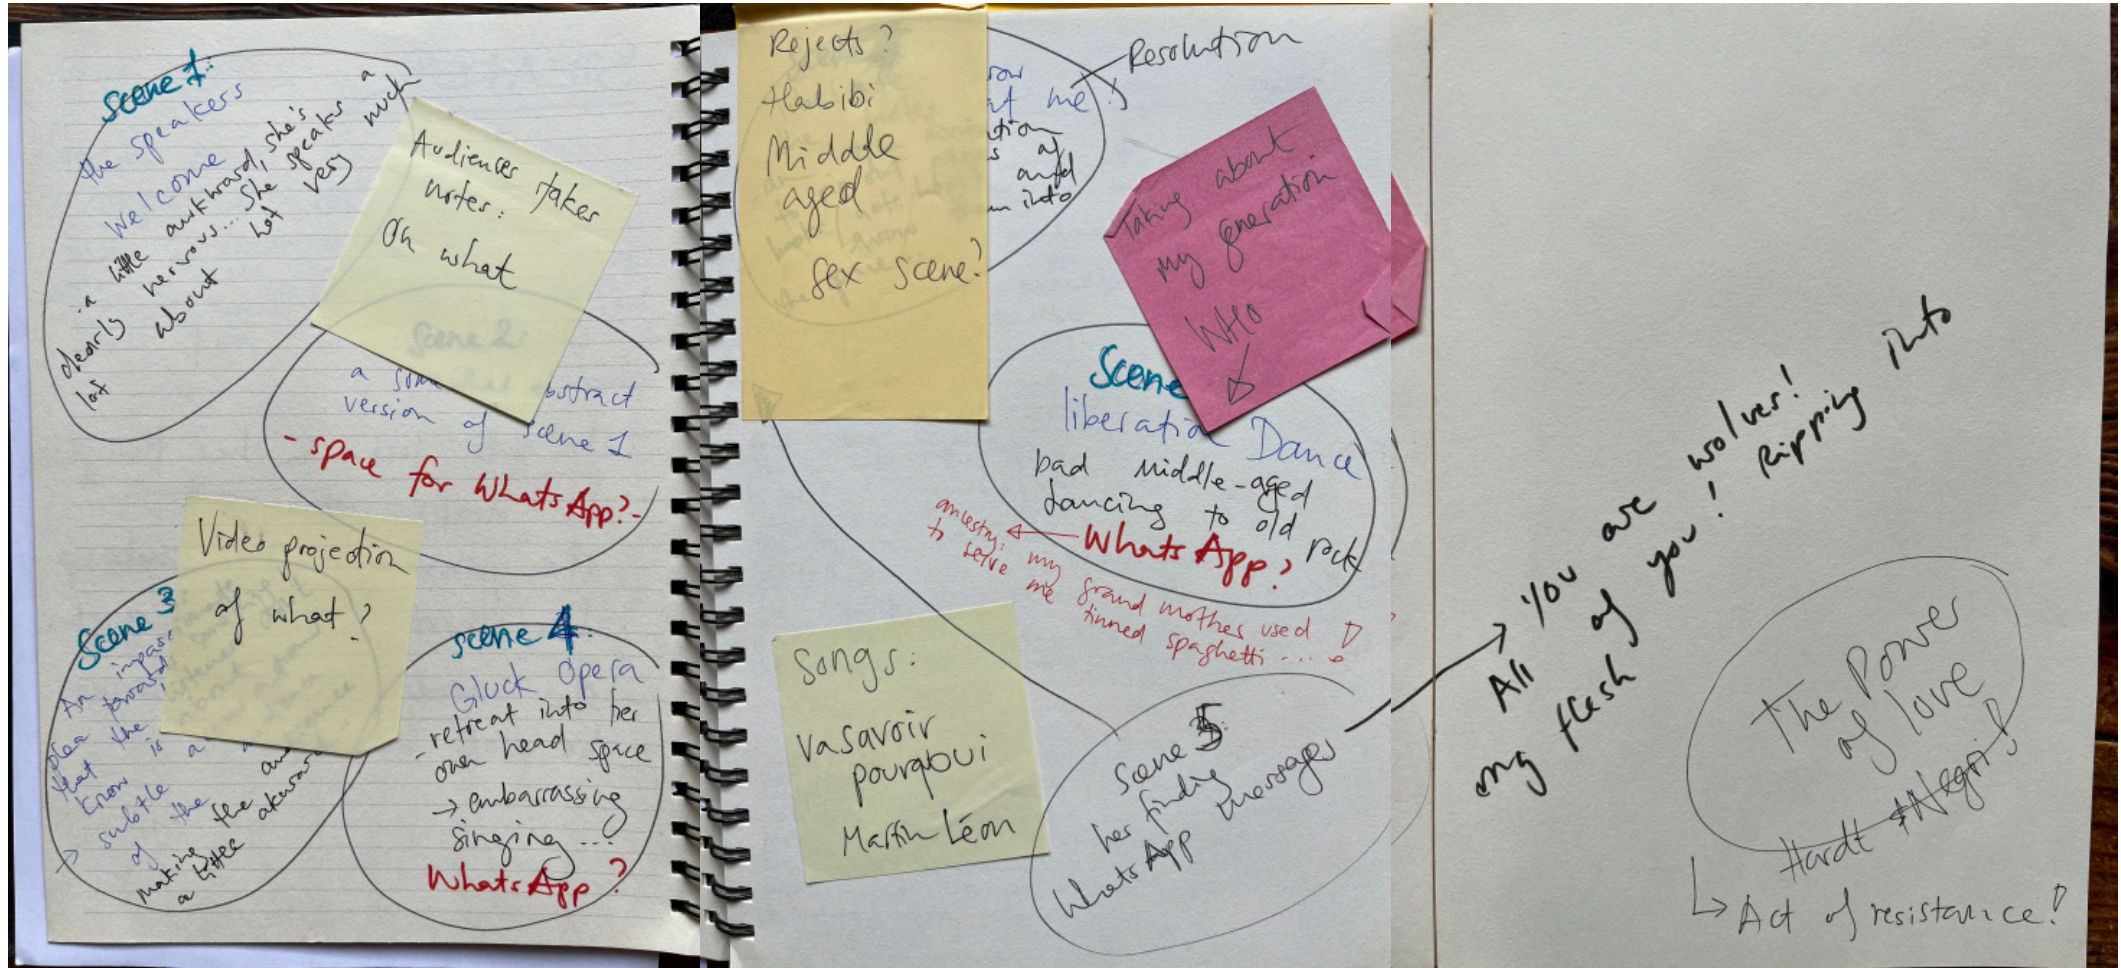 Scene 1:
the speakers
Welcome
- a little awkward, she's a
clearly nervous... She speaks a
lot about not very much
Audiences takes
notes:
On what
Scene 2:
a some abstract
version of scene 1
- space for WhatsApp?-
Video projection
of what?
Scene 3
An
that the
know is
subtle a
of the
making the
a little
scene 4:
Gluck Opera
- retreat into her
own head space
→ embarrassing
singing...
WhatsApp?
Rejects?
Habibi
Middle
aged
sex scene?
Resolution
me!
and
into
Taking about
my generation
WHO
Scene
liberation Dance
bad middle-aged
dancing to old rock
WhatsApp?
ancestry: my grand mother used
to serve me tinned spaghetti ....!
Songs:
Vasavoir
pourquoi
Martin Léon
Scene 5:
her finding
WhatsApp messages
→ You are wolves!
All of you! Ripping into
my flesh
The Power
of love
Hardt + Negri!
↳ Act of resistance!